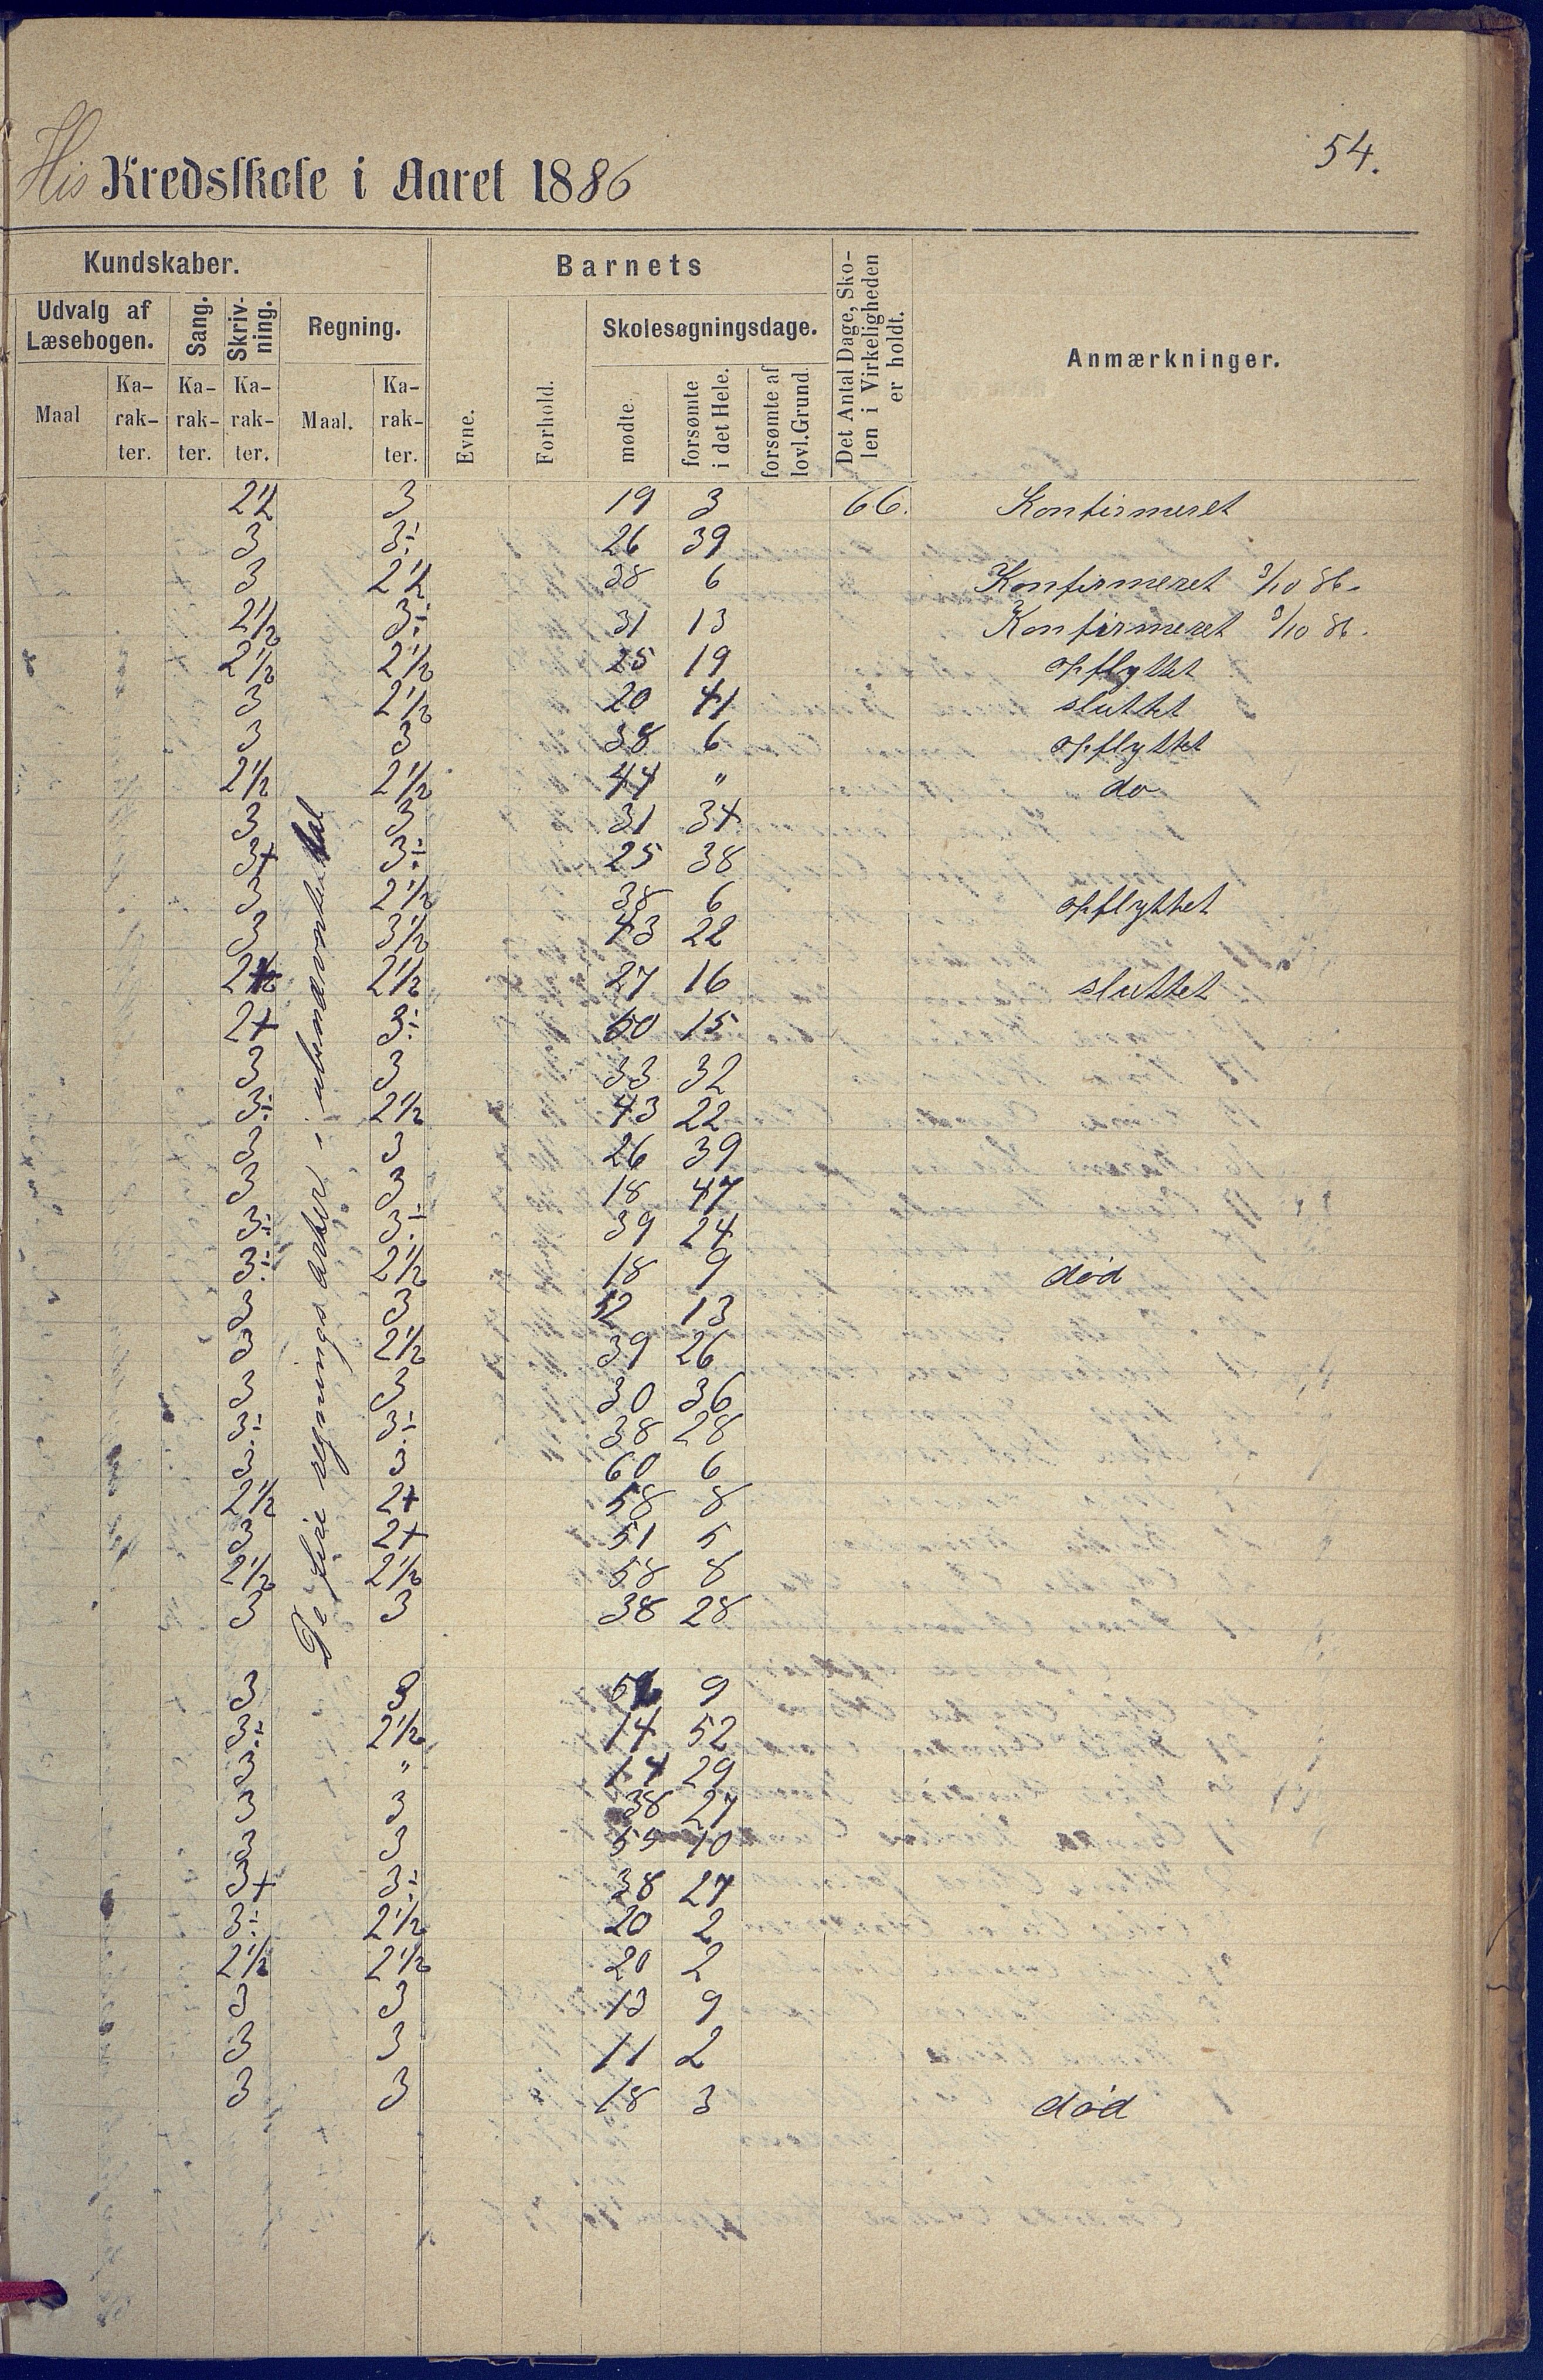 54.
His Kredsskole i Aaret 1886
Kundskaber. Barnets Det Antal Dage, Sko-len i Virkeligheden er holdt. Anmærkninger.
Udvalg af Læsebogen. Sang. Skriv-ning. Regning. Evne. Forhold. Skolesøgningsdage.
Maal Ka-rak-ter. Ka-rak-ter. Ka-rak-ter. Maal. Ka-rak-ter. mødte forsømte i det Hele. forsømte af lovl.Grund.
De fire regningsarter i ubenævnte tal
2½ 3 19 3 66. Konfirmeret
3 3÷ 26 39
3 2½ 38 6 Konfirmeret 3/10 86.
2½ 3÷ 31 13 Konfirmeret 3/10 86.
2½ 2½ 25 19 opflyttet
3 2½ 20 41 sluttet
3 3 38 6 opflyttet
2½ 2½ 44 " do
3 3 31 34
3+ 3÷ 25 38
3 2½ 38 6 opflyttet
3 3½ 43 22
2½ 2½ 27 16 sluttet
2+ 3÷ 50 15
3 3 33 32
3÷ 2½ 43 22
3 3 26 39
3 3 18 47
3÷ 3÷ 39 24
3÷ 2½ 18 9 død
3 3 52 13
3 2½ 39 26
3 3 30 36
3÷ 3÷ 38 28
3 3 60 6
2½ 2+ 58 8
3 2+ 51 5
2½ 2½ 58 8
3 3 38 28
3 3 9
3÷ 2½ 14 52
3 " 14 29
3 3 38 27
3 3 55 10
3+ 3÷ 38 27
3÷ 2½ 20 2
2½ 2½ 20 2
3 3 13 9
3 3 11 2
3 3 18 3 død